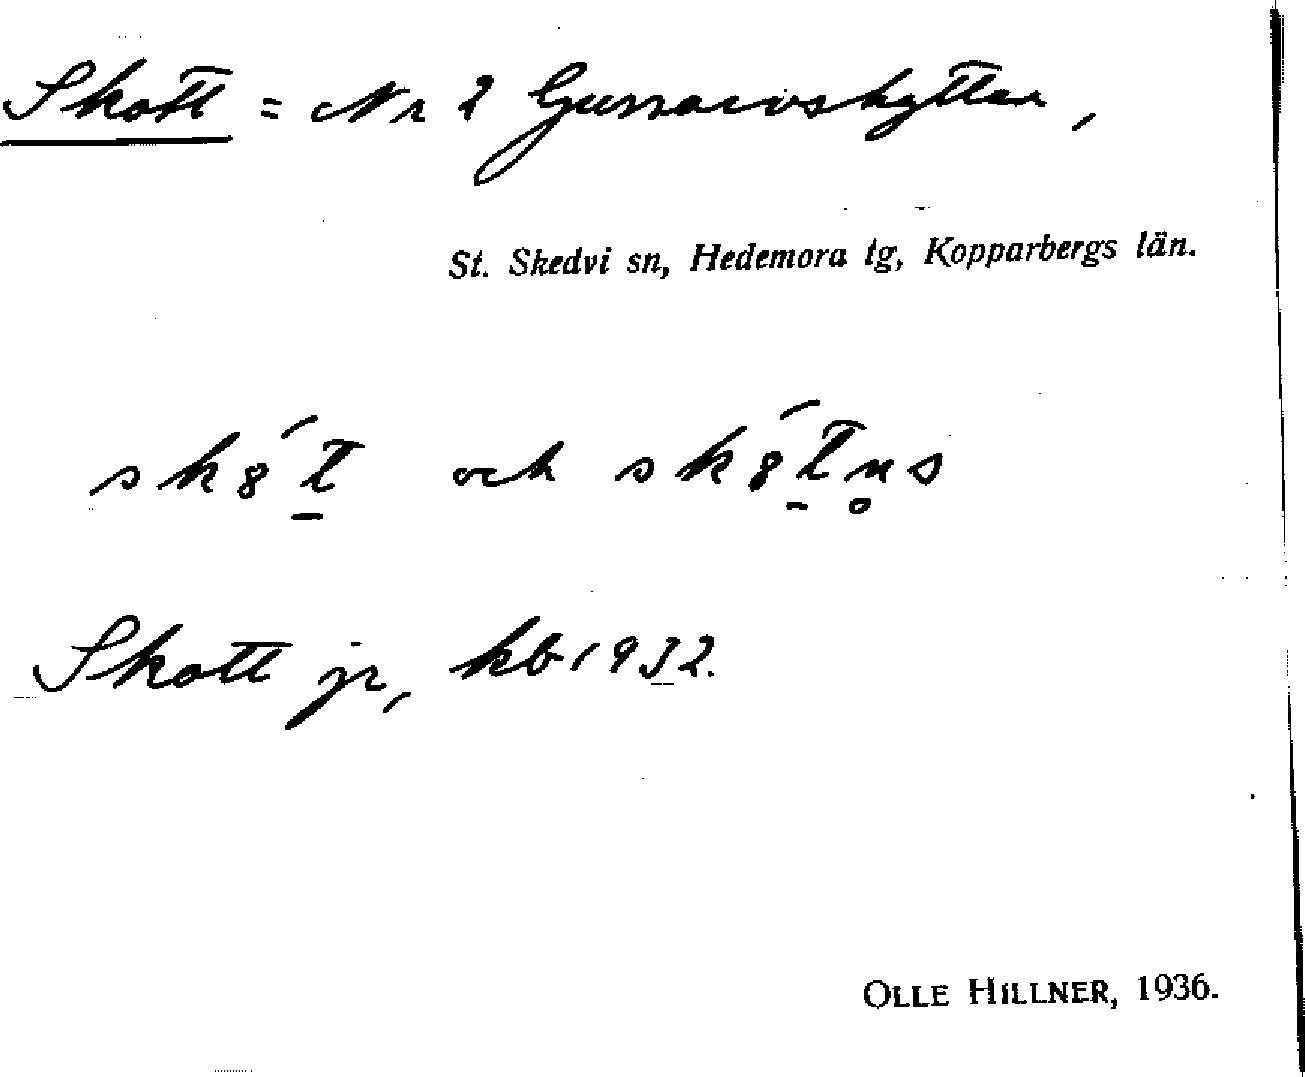 Skott = Nr 2 Gunnarvskyttan,
St. Skedvi sn, Hedemora tg, Kopparbergs län.
sk8́t̲ och sk8́t̲n̥s
Skott jr, kb 1932.
OLLE HILLNER, 1936.